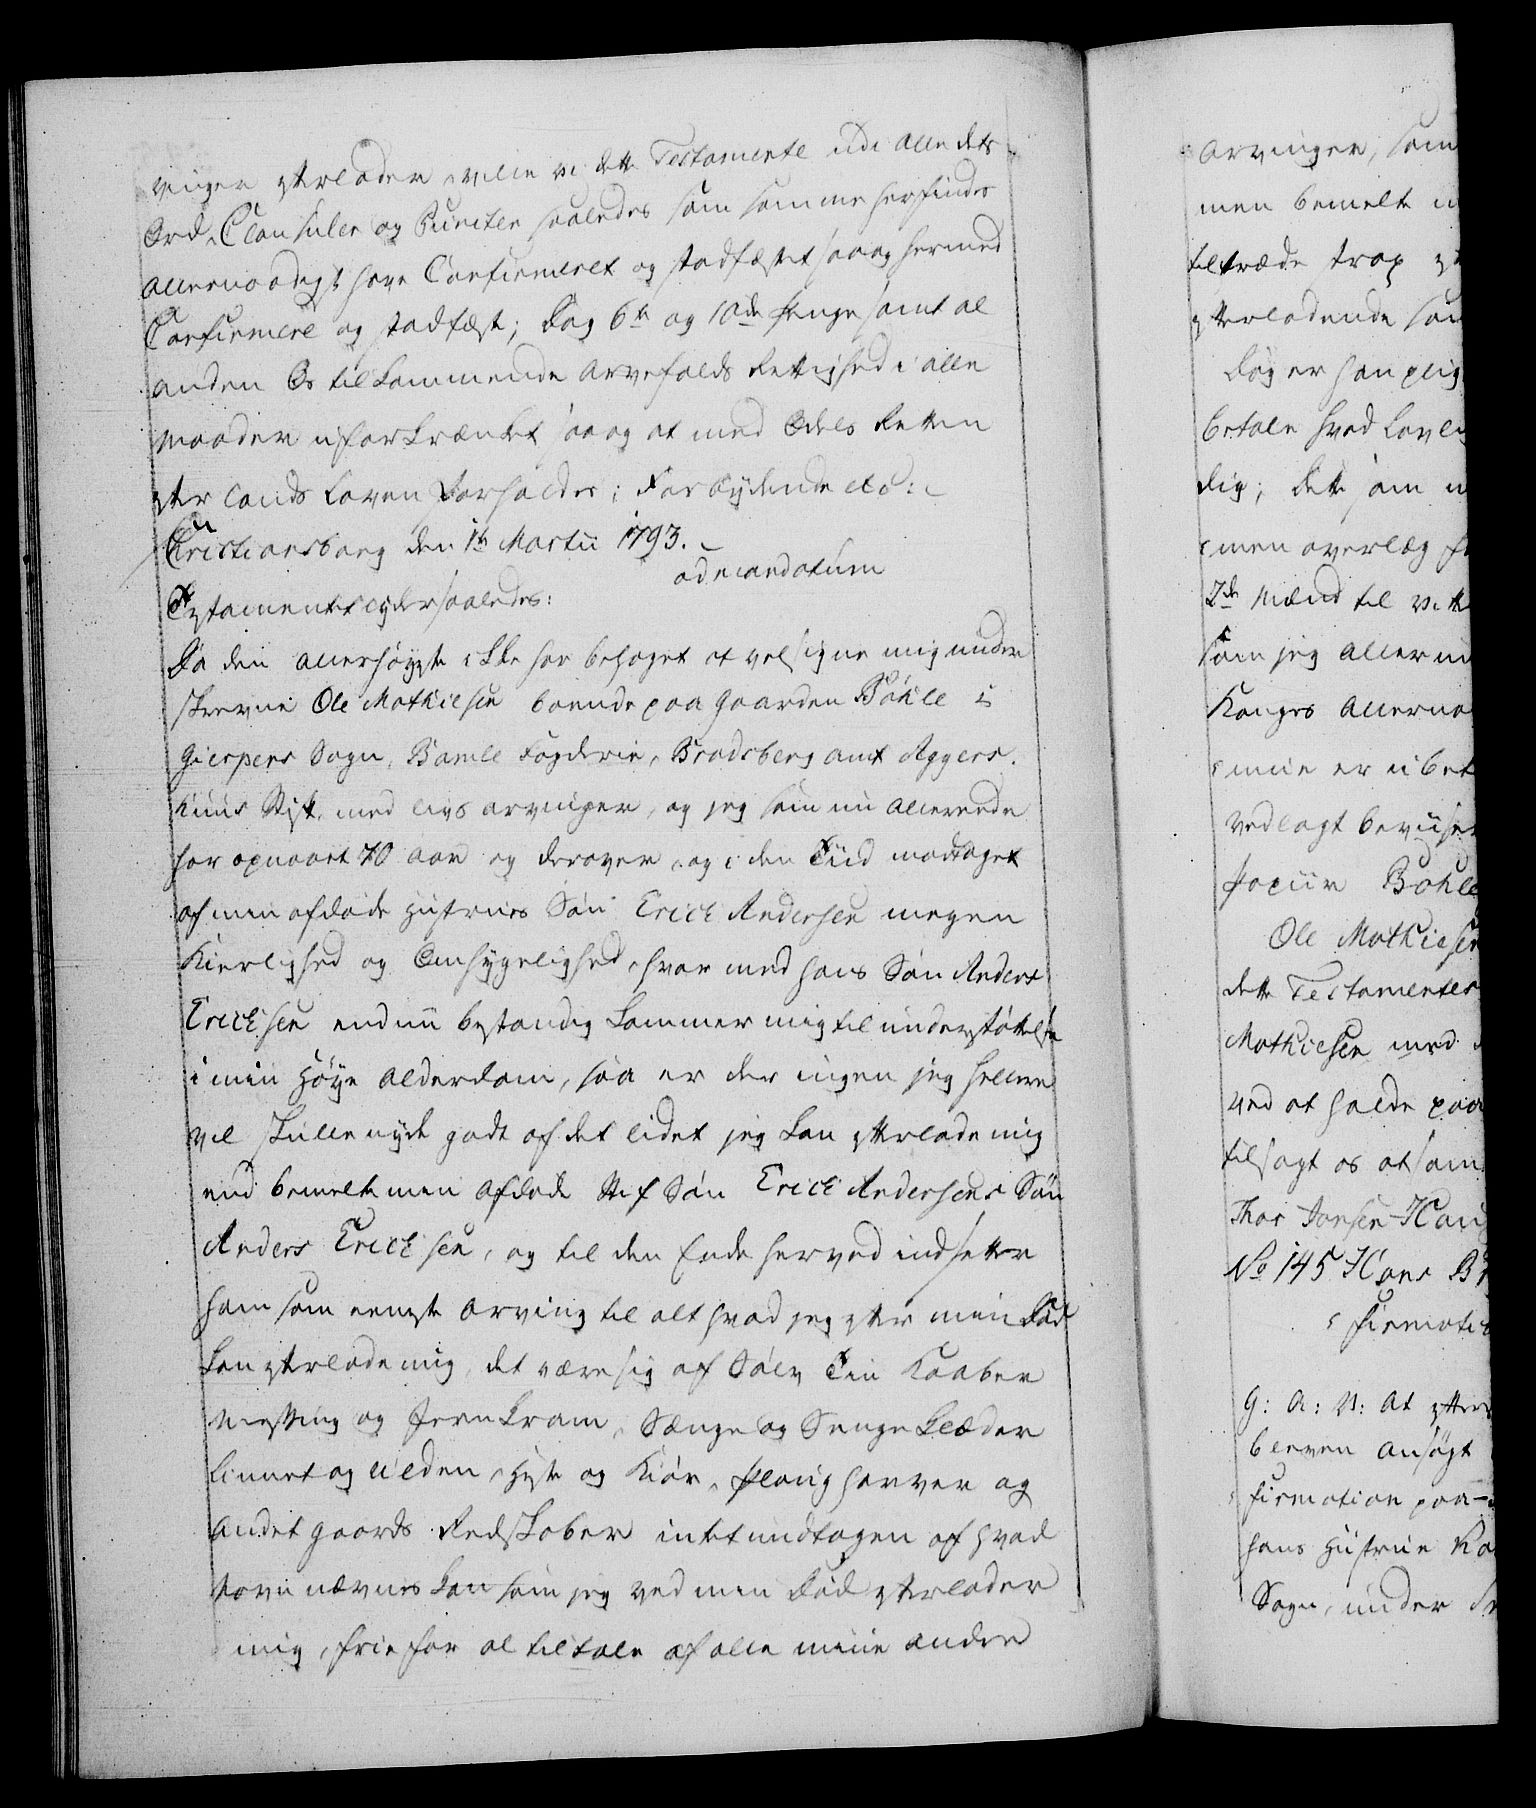 vinger efterlader, ville vi dette Testamente udi alle dets
Ord, Clausuler og Puncter saaledes som samme herfindes
allernaadigst have Confirmeret og stadfæstet saa og hermed
Confirmere og stadfæste; Dog 6te og 10de Penge samt al
anden Os tilkommende Arvefalds Rettighed i alle
maader uforkrænket, saa og at med Odels Retten
efter Lands Loven forholdes; Forbydende etc:
Christiansborg den 1te Martii 1793.
ad mandatum
Testamentet lyder saaledes:
Da den allerhøyeste ikke har behaget at velsigne mig under
skrevne Ole Mathiesen boende paa Gaarden Bøhle i
Gierpens Sogn, Bamle Fogderie, Bradsberg amt Aggers-
huus Stift, med livs arvinger, og jeg som nu allerede
har opnaaet 70 aar og derover, og i den Tiid modtaget
af min afdøde Hustrues Søn Erick Andersen megen
Kierlighed og Omhygelighed, hvormed hans Søn Anders
Ericksen endnu bestandig kommer mig til understøttelse
i min Høye Alderdom, saa er der ingen jeg hellere
vil skulle nyde godt af det lidet jeg kan efterlade mig
end bemelte min afdøde Stif Søn Erick Andersens Søn
Anders Ericksen, og til den Ende herved indsetter
ham som eneste Arving til alt hvad jeg efter min Død
kan efterlade mig, det være sig af Sølv Tin Kaaber
Messing og Jernkram, Sænge og Sengeklæder
Linnet og Ulden, Heste og Kiør, Ploug harver og
andet Gaards Redskaber intet undtagen af hvad
Navn nævnes kan som jeg ved min Død efterlader
mig, frie for al tiltale af alle mine andre
arvinger, som
men bemelte
tiltræde strax
efterladende
Dog er han
betale hvad
dig; dette
men overlæg
2de Mænd til
som jeg
Konges
mine er
vedlagt
Bøhle
Ole Mathiesen
dette Testamentes
Mathiesen med
ved at holde paa
tilsagt os at
Thor Jansen
No 145 Hans
firmation
G: A: V: At
bleven ansøgt
firmation paa
hans Hustrue
Sogn, under